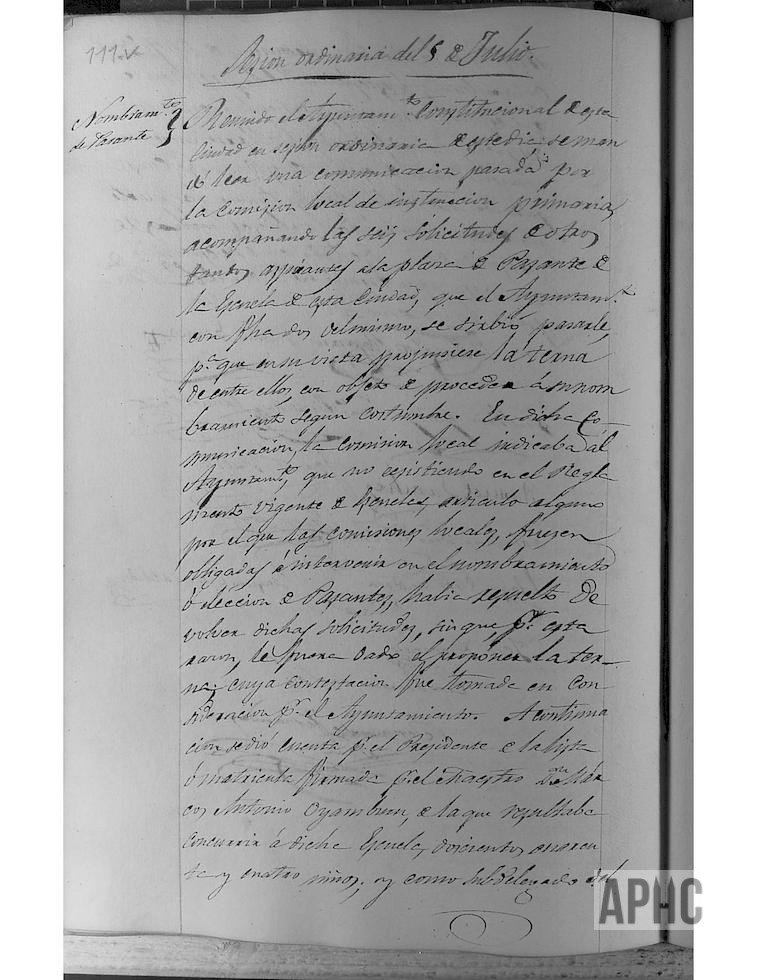 111.v
Sesion ordinaria del 5 de Julio.
Nombramto
de Pasante
Reunido el Ayuntamto Constitucional de esta
Ciudad en sesion ordinaria de este dia, se man
dó leer una comunicacion pasada por
la Comision local de instruccion primaria,
acompañando las seis solicitudes de otros
tantos aspirantes a la plaza de Pasante de
la Escuela de esta Ciudad, que el Ayuntamto
con del mismo, se sirbió pasarle,
pa que en su vista propusiese la terna
de entre ellos, con objeto de proceder a su nom
bramiento segun costumbre. En dicha Co
municacion, la Comision local indicaba al
Ayuntamto, que no ecsistiendo en el Regla
mento vigente de Escuelas, articulo alguno
por el que las comisiones locales, fuesen
obligadas á intervenir en el nombramiento
ó eleccion de Pasantes, habia resuelto de
volver dichas solicitudes, sin que pr esta
razon, le fuera dado el proponer la ter-
na; cuya contestacion fue tomada en con
sideracion pr el Ayuntamiento. A continua
cion se dió cuenta pr el Presidente de la lista
ó matricula firmada pr el Maestro Dn Mar
cos Antonio Oyambun, de la que resultaba
concurrir á dicha Escuela, doscientos cuaren
ta y cuatro niños, y como Subdelegado del
APHC